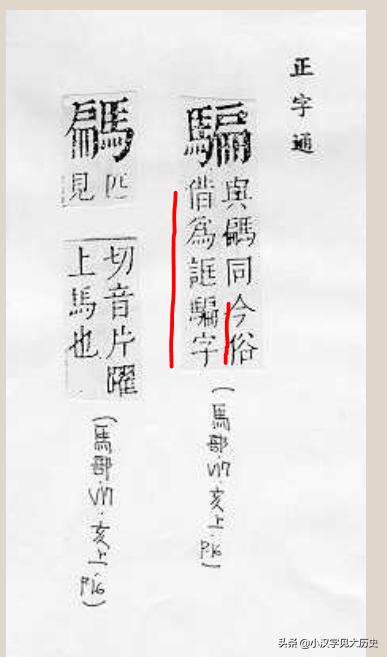 正字通
騙
與騗同今俗
借爲誆騙字
(馬部·V17·亥上·P.16)
騗
匹
見
切音片躍
上馬也
(馬部·V17·亥上·P.16)
头条 @小汉字见大历史